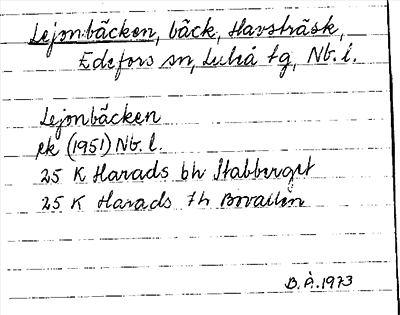 Lejonbäcken, bäck, Havsträsk,
Edefors sn, Luleå tg, Nb. l.
Lejonbäcken
ek (1951) Nb. l.
25 K Harads bh Stabberget
25 K Harads fh Bovallen
B.Å. 1973